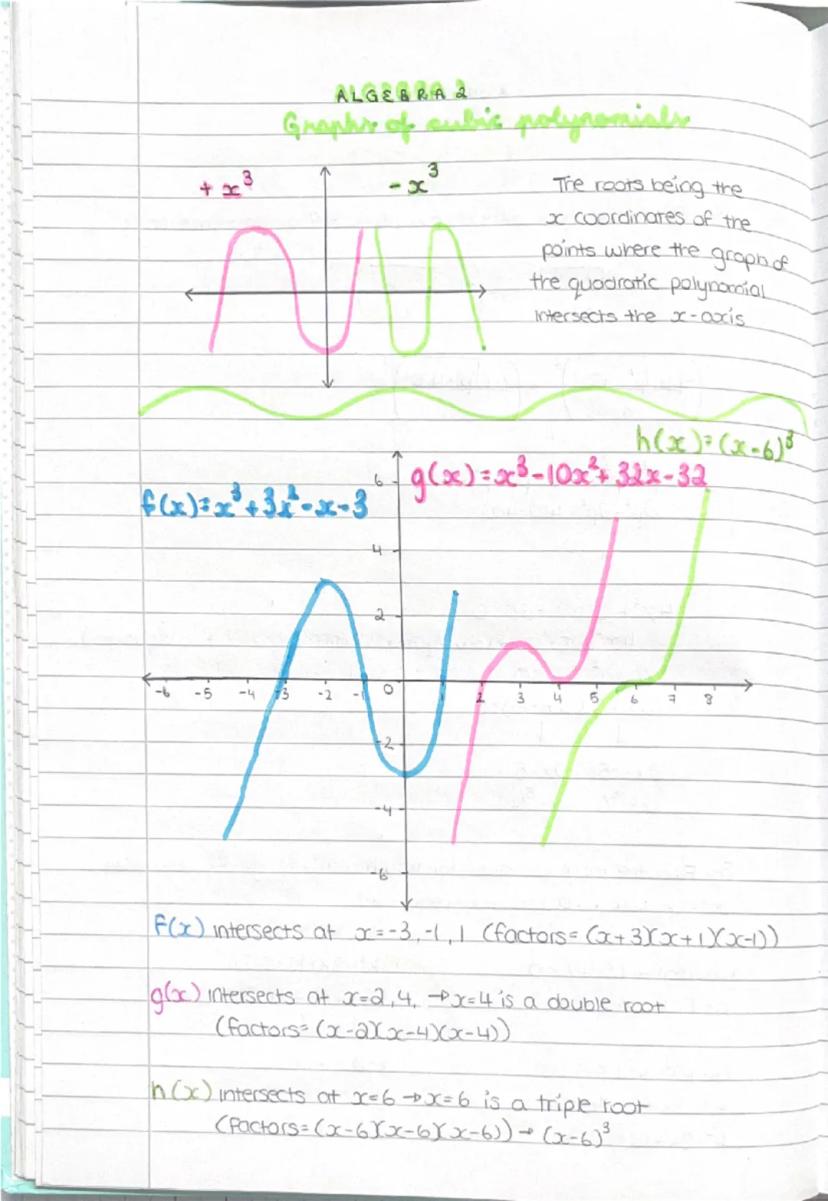 ALGEBRA 2
Graphs of cubic polynomials
+ x³
- x³
The roots being the
x coordinates of the
points where the graph of
the quadratic polynomial
intersects the x-axis
h(x)=(x-6)³
g(x)=x³-10x²+32x-32
f(x)=x³+3x²-x-3
6
4
2
-6 -5 -4 -3 -2 -1 0 1 2 3 4 5 6 7 8
-2
-4
-6
f(x) intersects at x=-3,-1,1 (factors=(x+3)(x+1)(x-1))
g(x) intersects at x=2,4, →x=4 is a double root
(factors=(x-2)(x-4)(x-4))
h(x) intersects at x=6→x=6 is a triple root
(factors=(x-6)(x-6)(x-6))→(x-6)³